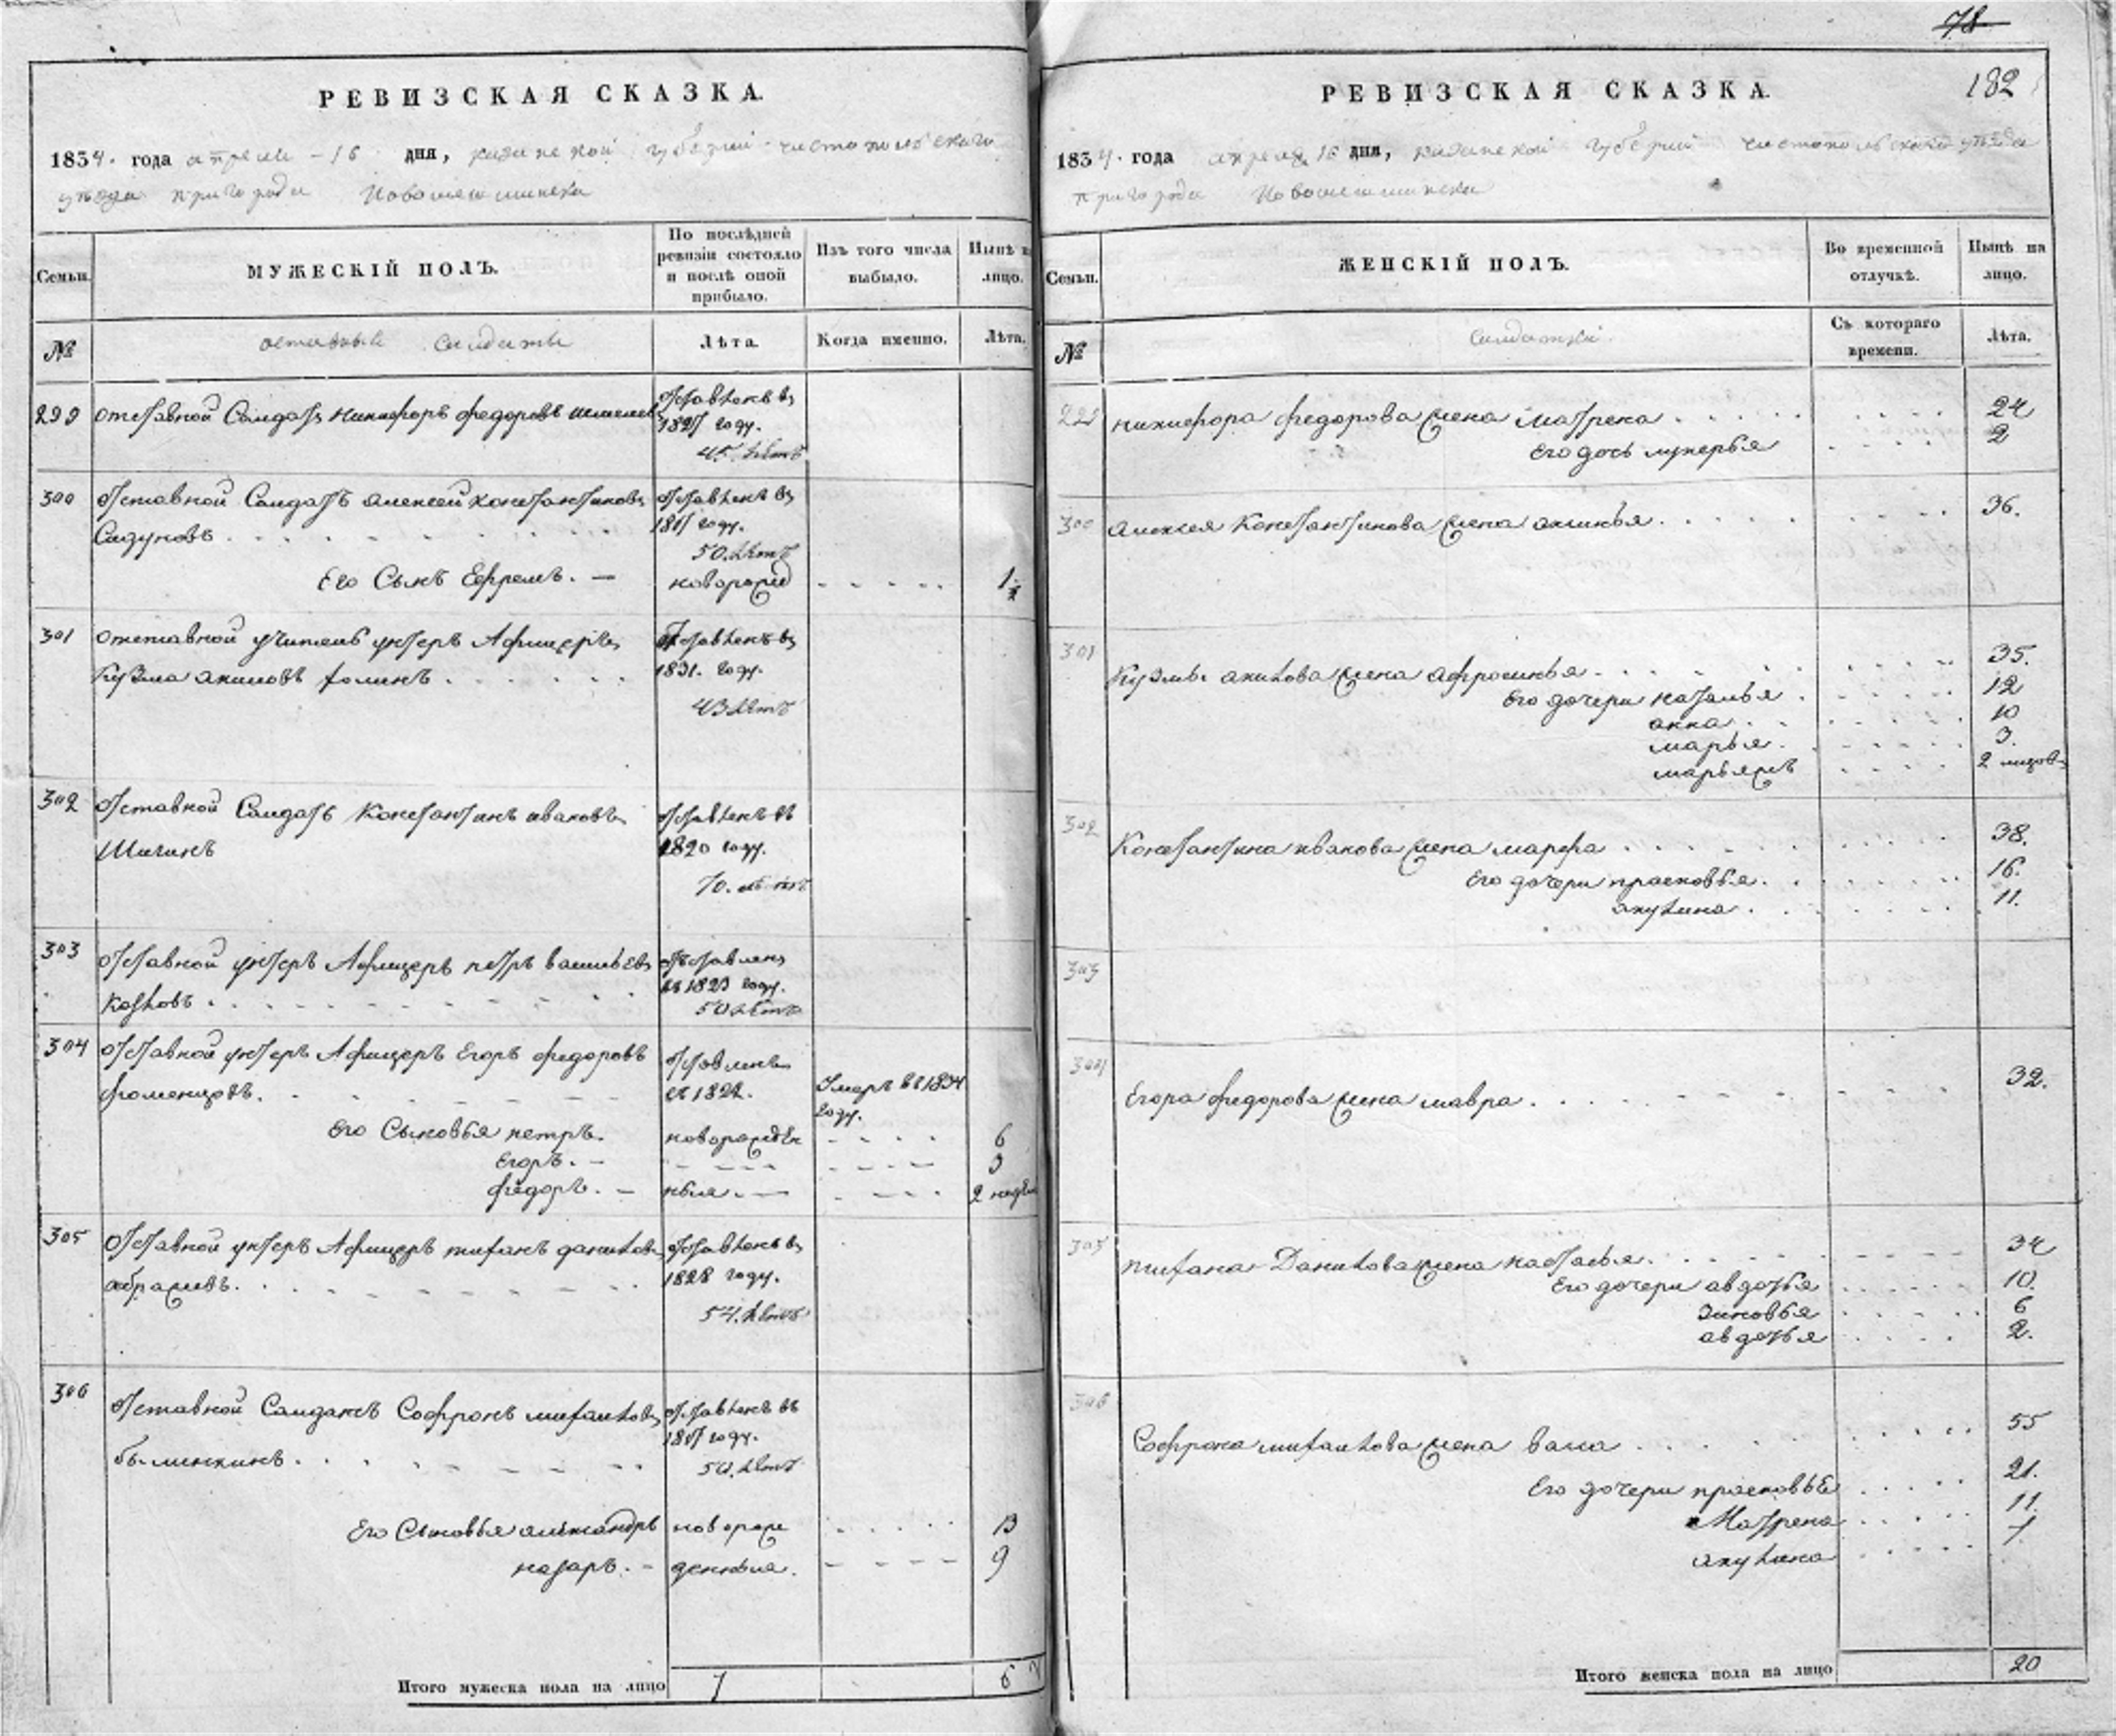 РЕВИЗСКАЯ СКАЗКА.
1834. года апреля - 16 дня, казанской губернии чистопольскаго
уезда пригорода Новошешминска
Семьи.
МУЖЕСКІЙ ПОЛЪ.
По послѣдней ревизіи состояло и послѣ оной прибыло.
Изъ того числа выбыло.
Нынѣ на лицо.
№
солдаты
Лѣта.
Когда именно.
Лѣта.
299 отставной Солдатъ Никифоръ федоровъ
отставленъ въ
45. летъ
300 отставной Солдатъ алексей константиновъ
отставленъ въ
году.
50. летъ
Его Сынъ Ефремъ. —
301 отставной унтеръ Афицеръ
отставленъ въ
Кузма акимовъ фоминъ
1831. году.
43 летъ
302 отставной Солдатъ Константинъ ивановъ
отставленъ въ
1820 году.
70. летъ
303 отставной унтеръ Афицеръ петръ васильевъ
отставленъ
въ 1823 году.
50 летъ
304 отставной унтеръ Афицеръ Егоръ федоровъ
отставленъ
Умеръ въ 1834
году.
его Сыновья петръ.
6
Егоръ. —
3
федоръ. —
2 недели
305 отставной унтеръ Афицеръ данилов
отставленъ въ
абрамовъ.
1828 году.
54. летъ
306 отставной Солдатъ Софронъ михаиловъ
отставленъ въ
году.
50. летъ
Его Сыновья александръ
новорож
13
назаръ. —
денныя.
9
Итого мужеска пола на лицо
7
6
78
182
РЕВИЗСКАЯ СКАЗКА.
1834. года апреля 16 дня, казанской губернии чистопольскаго уезда
пригорода Новошешминска
Семьи.
ЖЕНСКІЙ ПОЛЪ.
Во временной отлучкѣ.
Нынѣ на лицо.
№
солдатки.
Съ котораго времени.
Лѣта.
никифора федорова жена Матрена
24
Его дочь лукерья
2
300 алексея Константинова жена
36.
301 Кузмы акимова жена афросинья
35.
Его дочери наталья
12
анна
10
марья.
3.
2
302 Константина иванова жена марфа
38.
Его дочери прасковья.
16.
акулина.
11.
303
304 Егора федорова жена мавра
32.
305 Данилова жена настасья
34
Его дочери авдотья
10.
зиновья
6
авдотья
2.
306 Софрона михаилова жена васса
55
Его дочери прасковье
21.
Матрена
11
акулина
7.
Итого женска пола на лицо
20